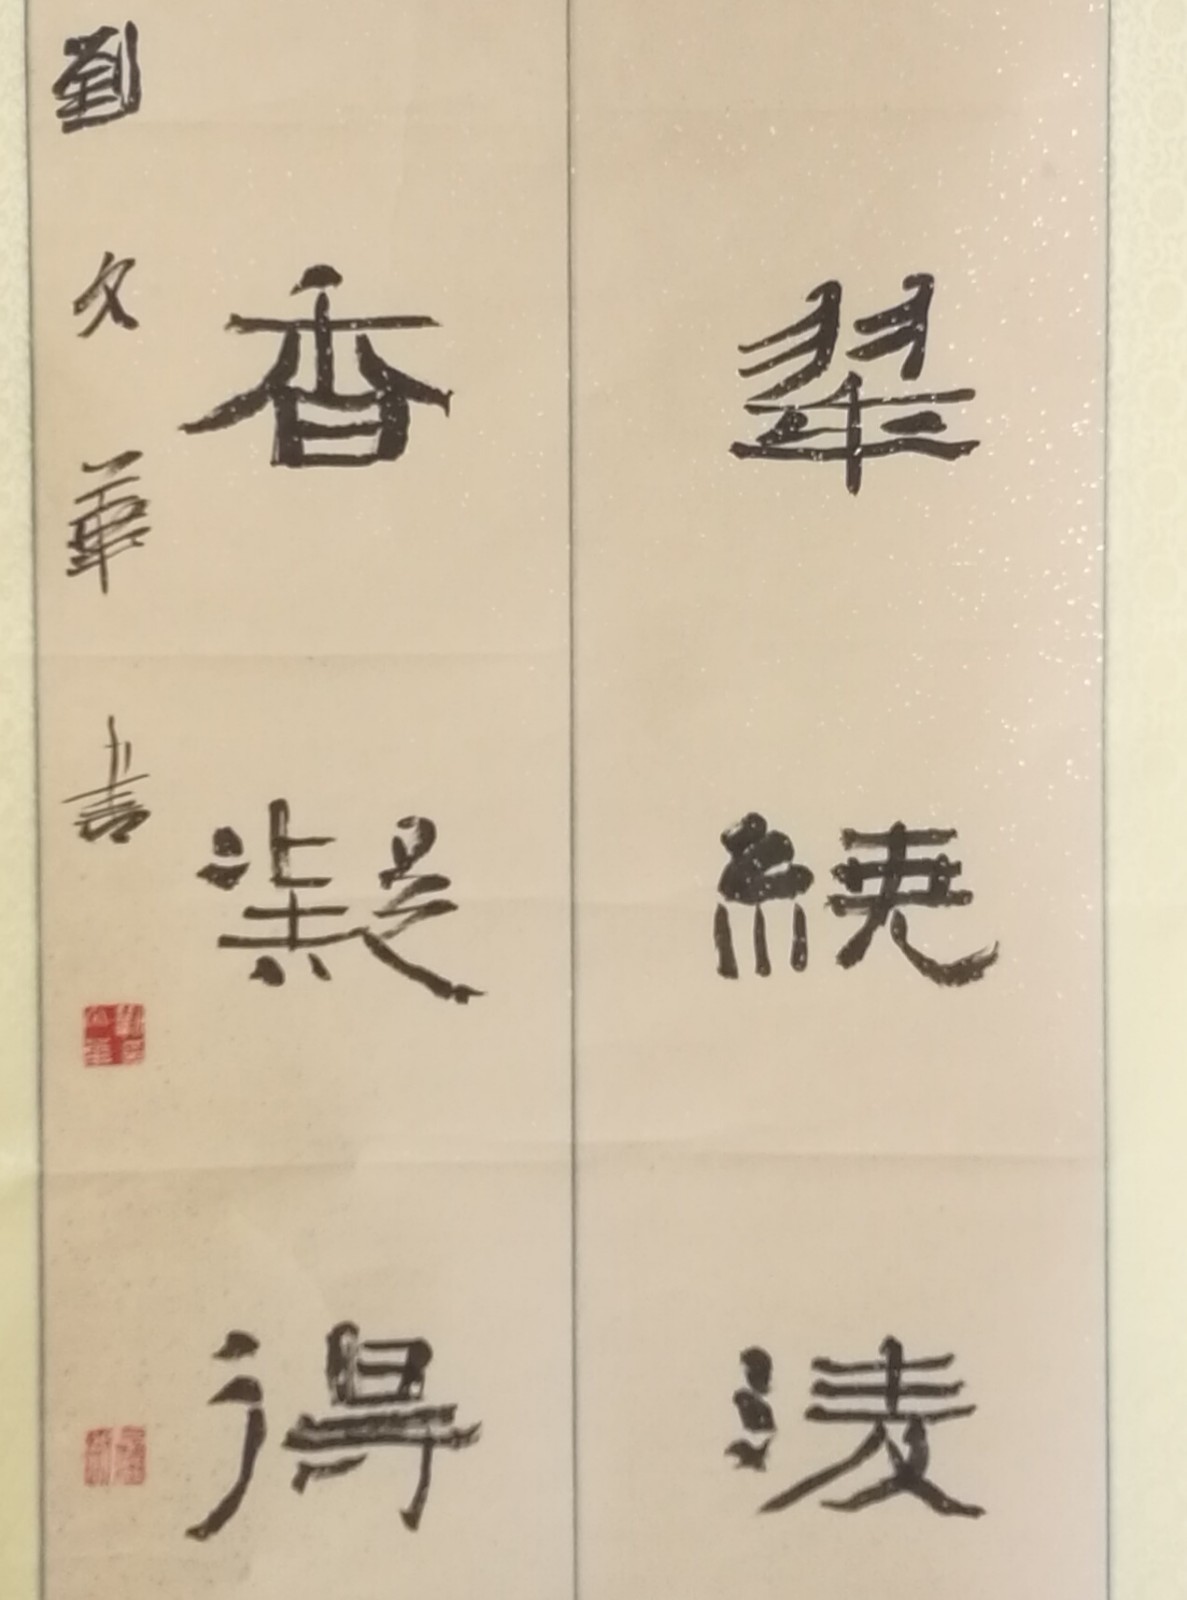 翠繞淩
香凝得
劉文華書